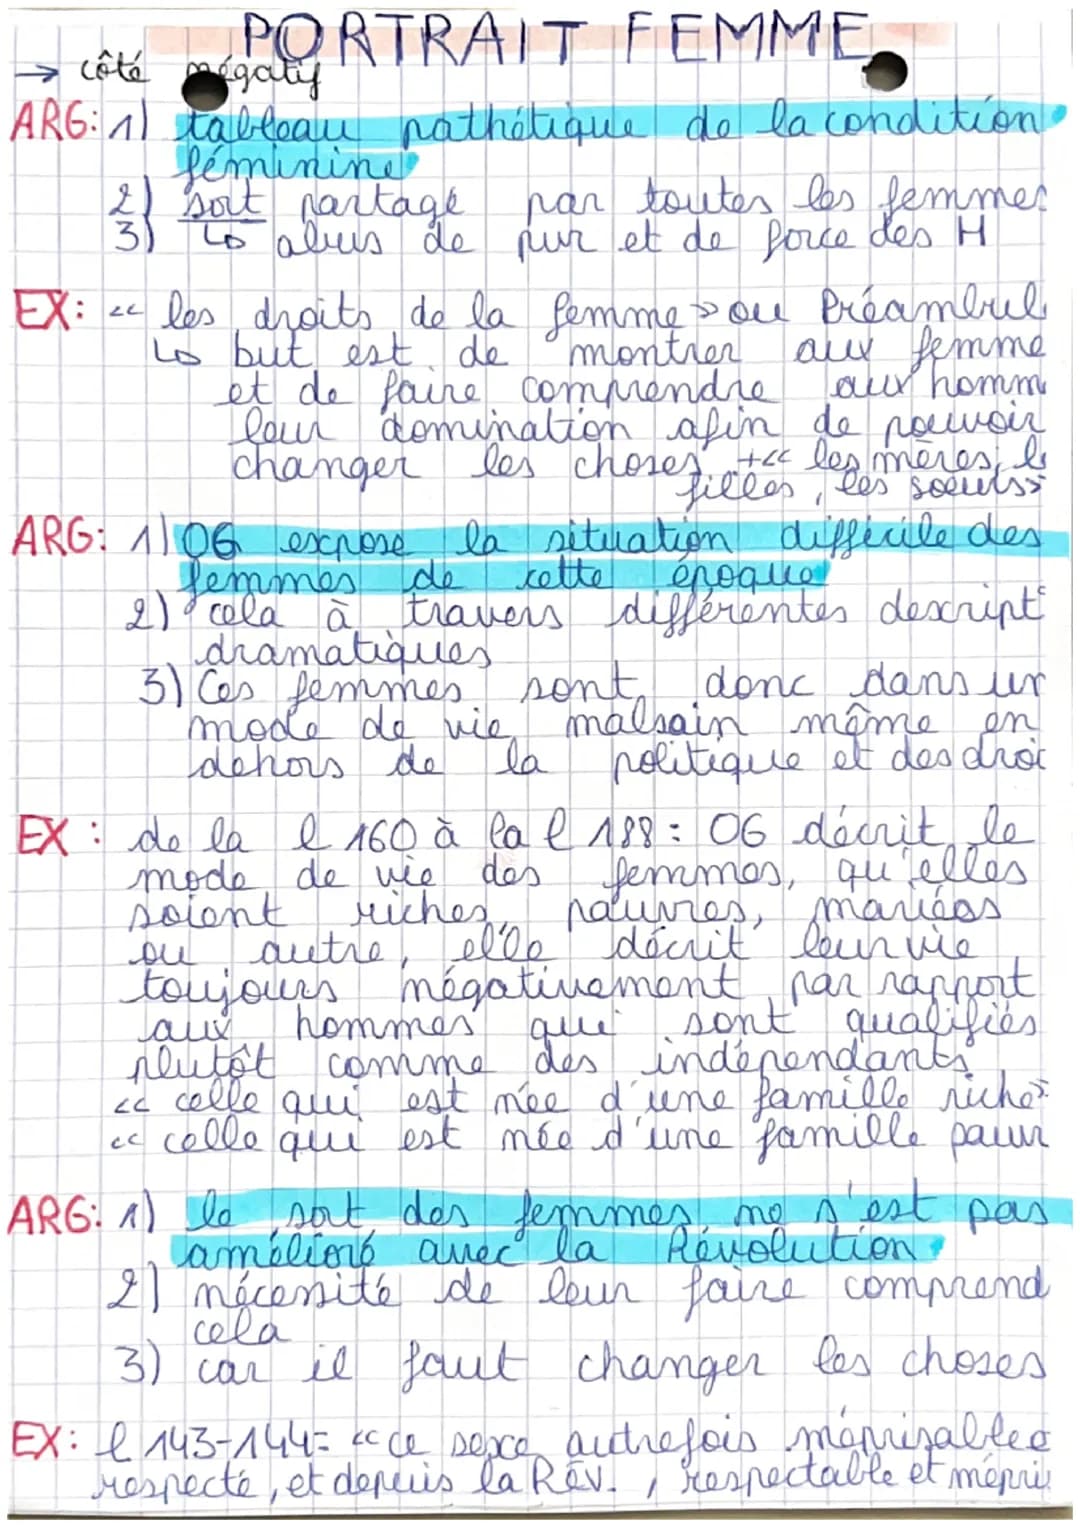 PORTRAIT FEMME
→ côté négatif
ARG: 1) tableau pathétique de la condition
féminine
2) sort partagé par toutes les femmes
3) ↳ abus de pvr et de force des H
EX: << les droits de la femme >> ou Préambul
↳ but est de montrer aux femme
et de faire comprendre aux homm
leur domination afin de pouvoir
changer les choses +<< les mères, le
filles, les soeurs>>
ARG: 1) OG expose la situation difficile des
femmes de cette époque
2) cela à travers différentes descript°
dramatiques
3) Ces femmes sont donc dans un
mode de vie malsain même en
dehors de la politique et des droi
EX : de la l 160 à la l 188 : OG décrit le
mode de vie des femmes, qu'elles
soient riches, pauvres, mariées
ou autre, elle décrit leur vie
toujours négativement par rapport
aux hommes qui sont qualifiés
plutôt comme des indépendants
<< celle qui est née d'une famille riche>>
<< celle qui est née d'une famille pauvr
ARG: 1) le sort des femmes ne s'est pas
amélioré avec la Révolution
2) nécessité de leur faire comprend
cela
3) car il faut changer les choses
EX: l 143-144= << ce sexe autrefois méprisable e
respecté, et depuis la Rév., respectable et mépri